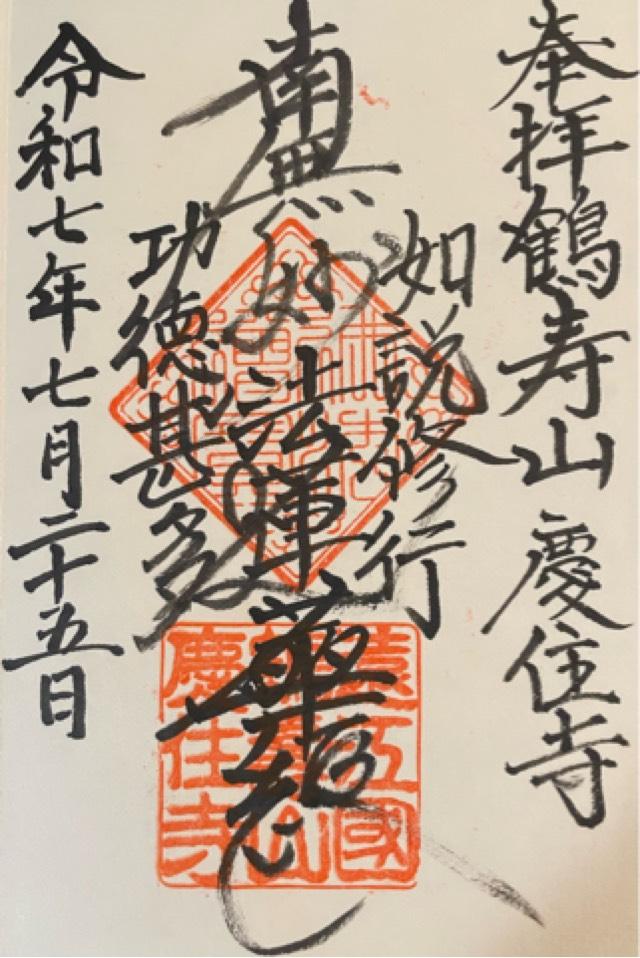 奉拝鶴寿山 慶住寺
如説修行
南無妙法蓮華経
功徳甚多
令和七年七月二十五日
遠江國
山
慶住寺